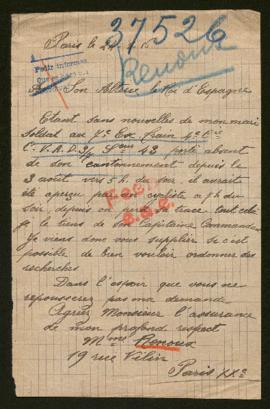 37526
Paris le
Renoux
A Son Altesse le Roi d'Espagne
Etant sans nouvelles de mon mari
Soldat au 7e Esc Train 4e Cie
C.V.A.D. 43 porté absent
de son cantonnement depuis le
3 août vers 5h du soir, il aurait
été aperçu par un cycliste à 7h du
soir, depuis on perd sa trace tout cela
je le tiens de son Capitaine Commandant
Je viens donc vous supplier si c'est
possible de bien vouloir ordonner des
recherches
Dans l'espoir que vous ne
repousserez pas ma demande
Agréez Monsieur l'assurance
de mon profond respect
Mme Renoux
19 rue Vilin
Paris XXe